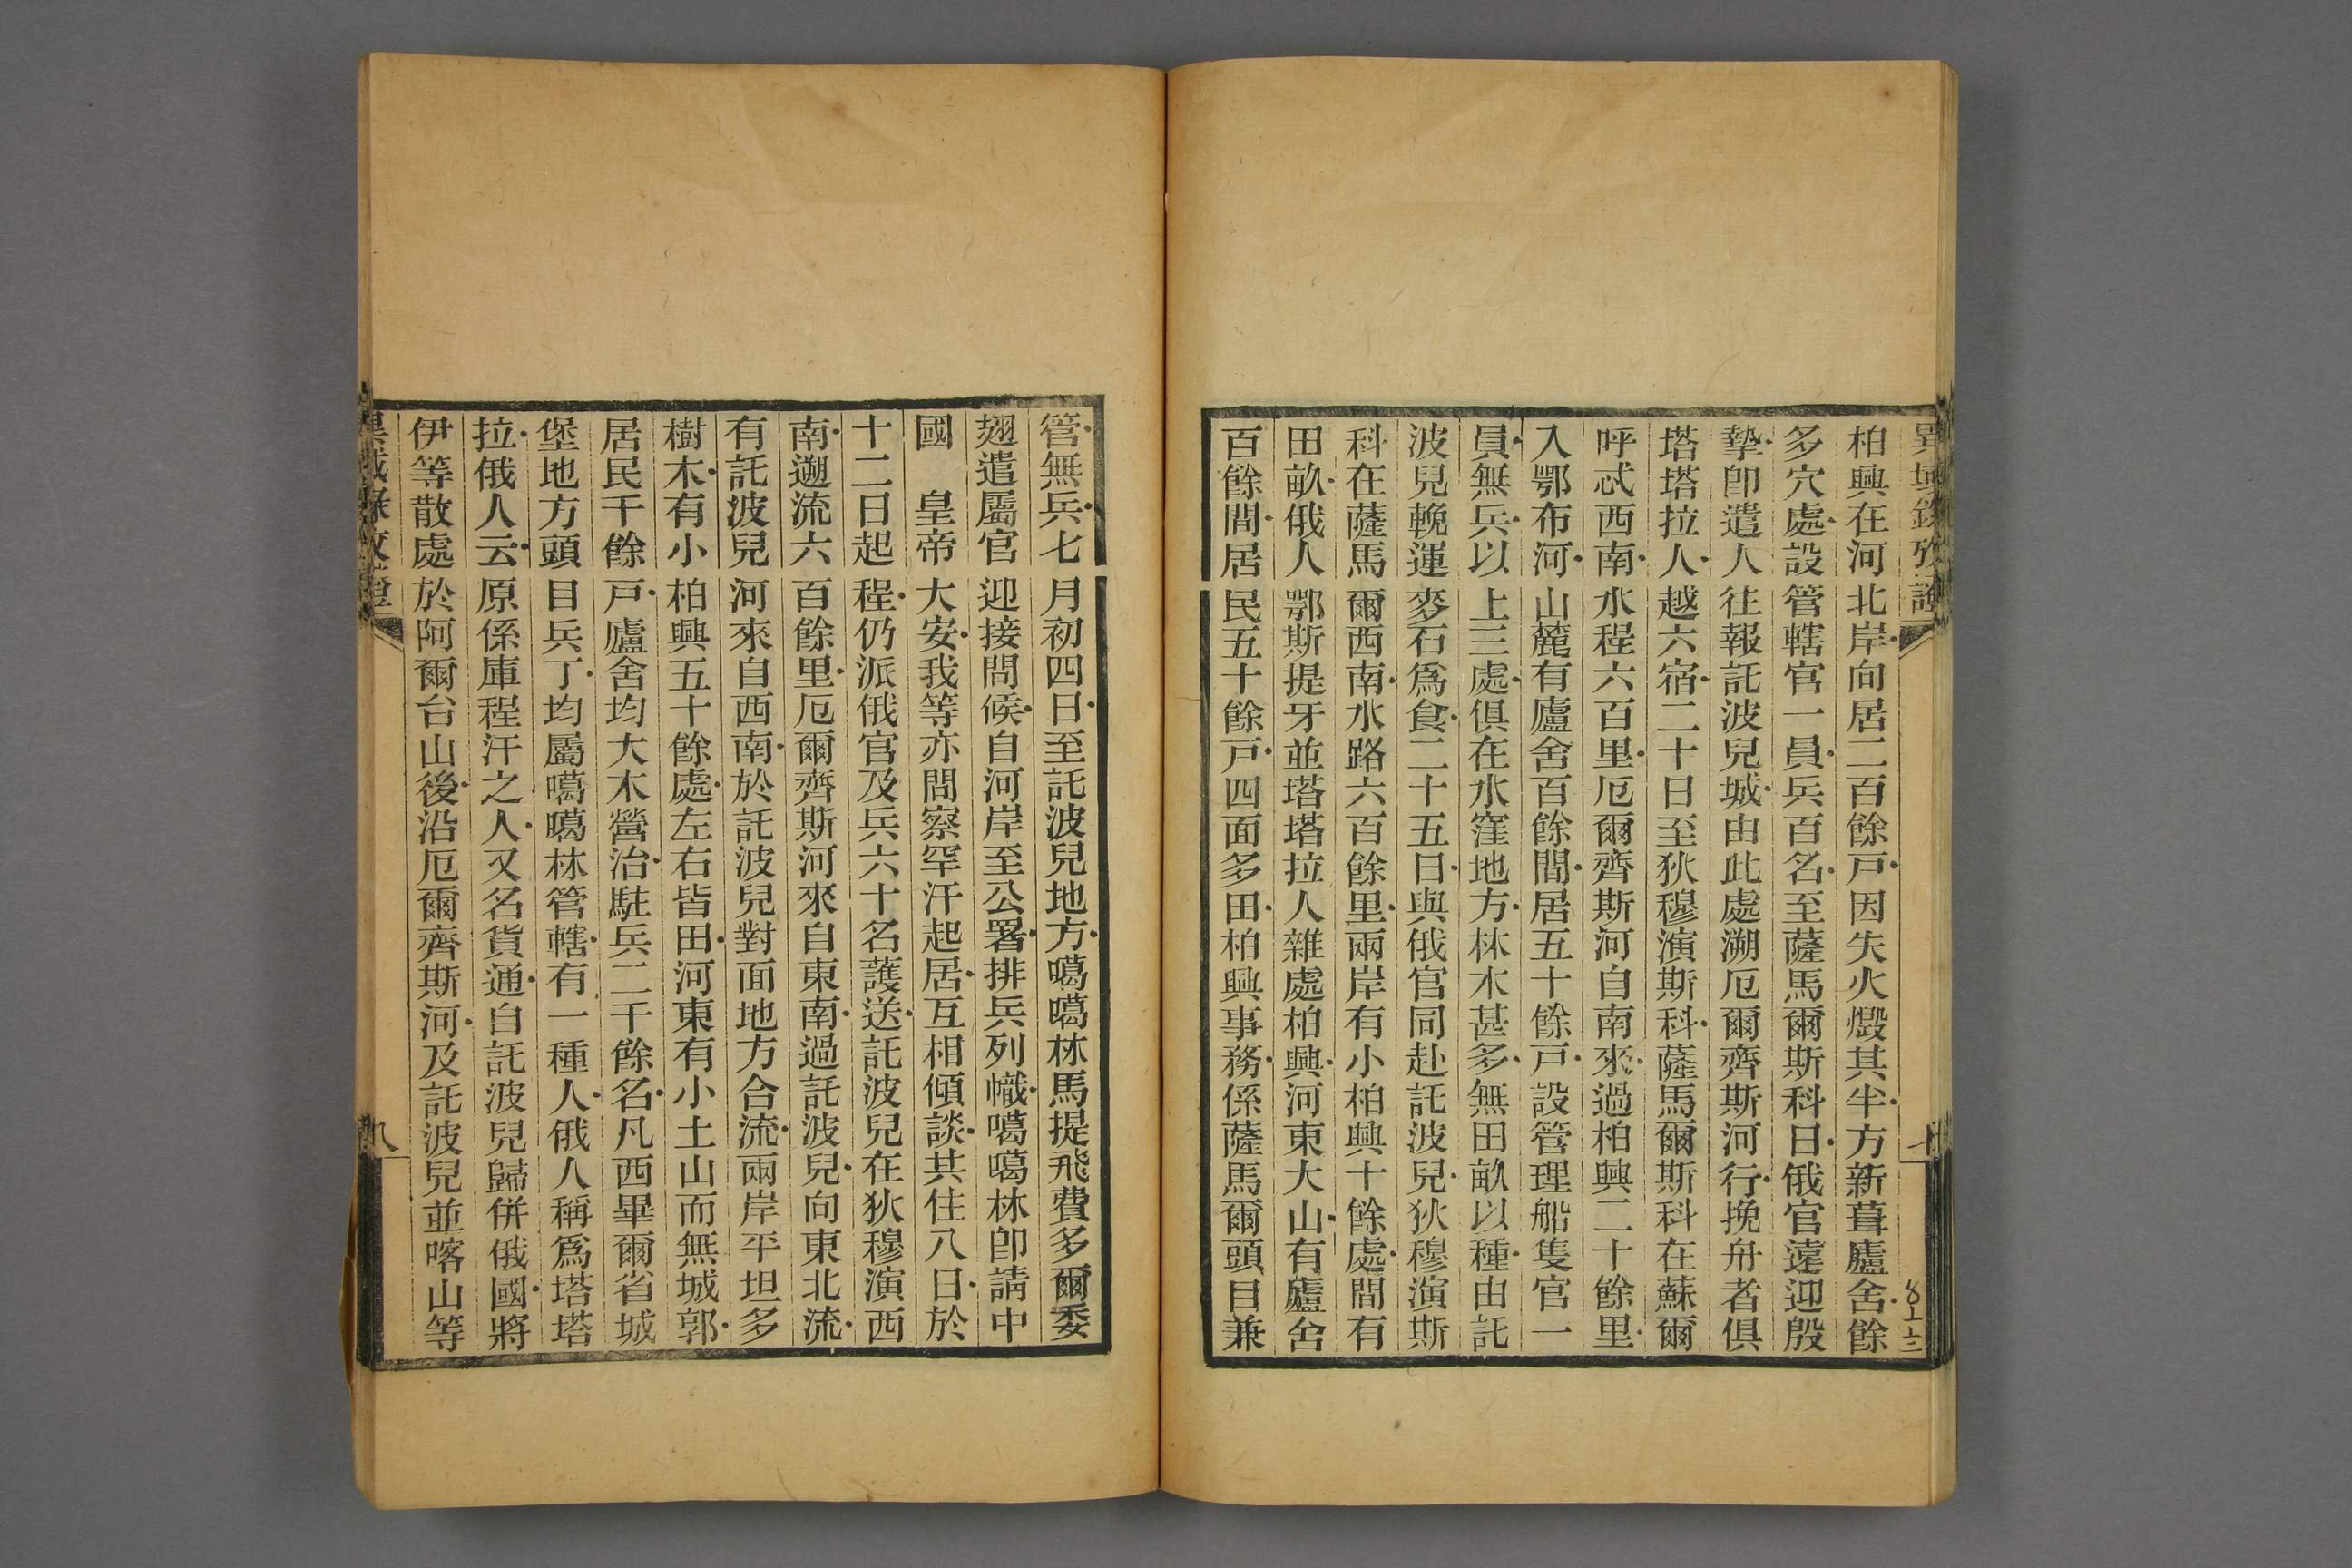 異域錄攷證
柏興在河北岸向居二百餘戸因失火燬其半方新葺廬舍餘
多穴處設管轄官一員兵百名至薩馬爾斯科日俄官遠迎殷
摯卽遣人往報託波兒城由此處溯厄爾齊斯河行挽舟者俱
塔塔拉人越六宿二十日至狄穆演斯科薩馬爾斯科在蘇爾
呼忒西南水程六百里厄爾齊斯河自南來過柏興二十餘里
入鄂布河山麓有廬舍百餘間居五十餘戸設管理船隻官一
員無兵以上三處俱在水窪地方林木甚多無田畝以種由託
波兒輓運麥石爲食二十五日與俄官同赴託波兒狄穆演斯
科在薩馬爾西南水路六百餘里兩岸有小柏興十餘處間有
田畝俄人鄂斯提牙並塔塔拉人雜處柏興河東大山有廬舍
百餘間居民五十餘戸四面多田柏興事務係薩馬爾頭目兼
管無兵七月初四日至託波兒地方噶噶林馬提飛費多爾委
翅遣屬官迎接問候自河岸至公署排兵列幟噶噶林卽請中
國　皇帝大安我等亦問察罕汗起居互相傾談共住八日於
十二日起程仍派俄官及兵六十名護送託波兒在狄穆演西
南遡流六百餘里厄爾齊斯河來自東南過託波兒向東北流
有託波兒河來自西南於託波兒對面地方合流兩岸平坦多
樹木有小柏興五十餘處左右皆田河東有小土山而無城郭
居民千餘戸廬舍均大木營治駐兵二千餘名凡西畢爾省城
堡地方頭目兵丁均屬噶噶林管轄有一種人俄人稱爲塔塔
拉俄人云原係庫程汗之人又名貨通自託波兒歸併俄國將
伊等散處於阿爾台山後沿厄爾齊斯河及託波兒並喀山等
異域錄攷證
八